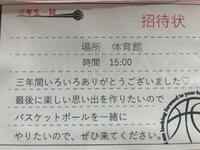 三年生一同
招待状
場所 体育館
時間 15:00
三年間いろいろありがとうございました♡
最後に楽しい思い出を作りたいので
バスケットボールを一緒に
やりたいので、ぜひ来てください。
looking forward to your